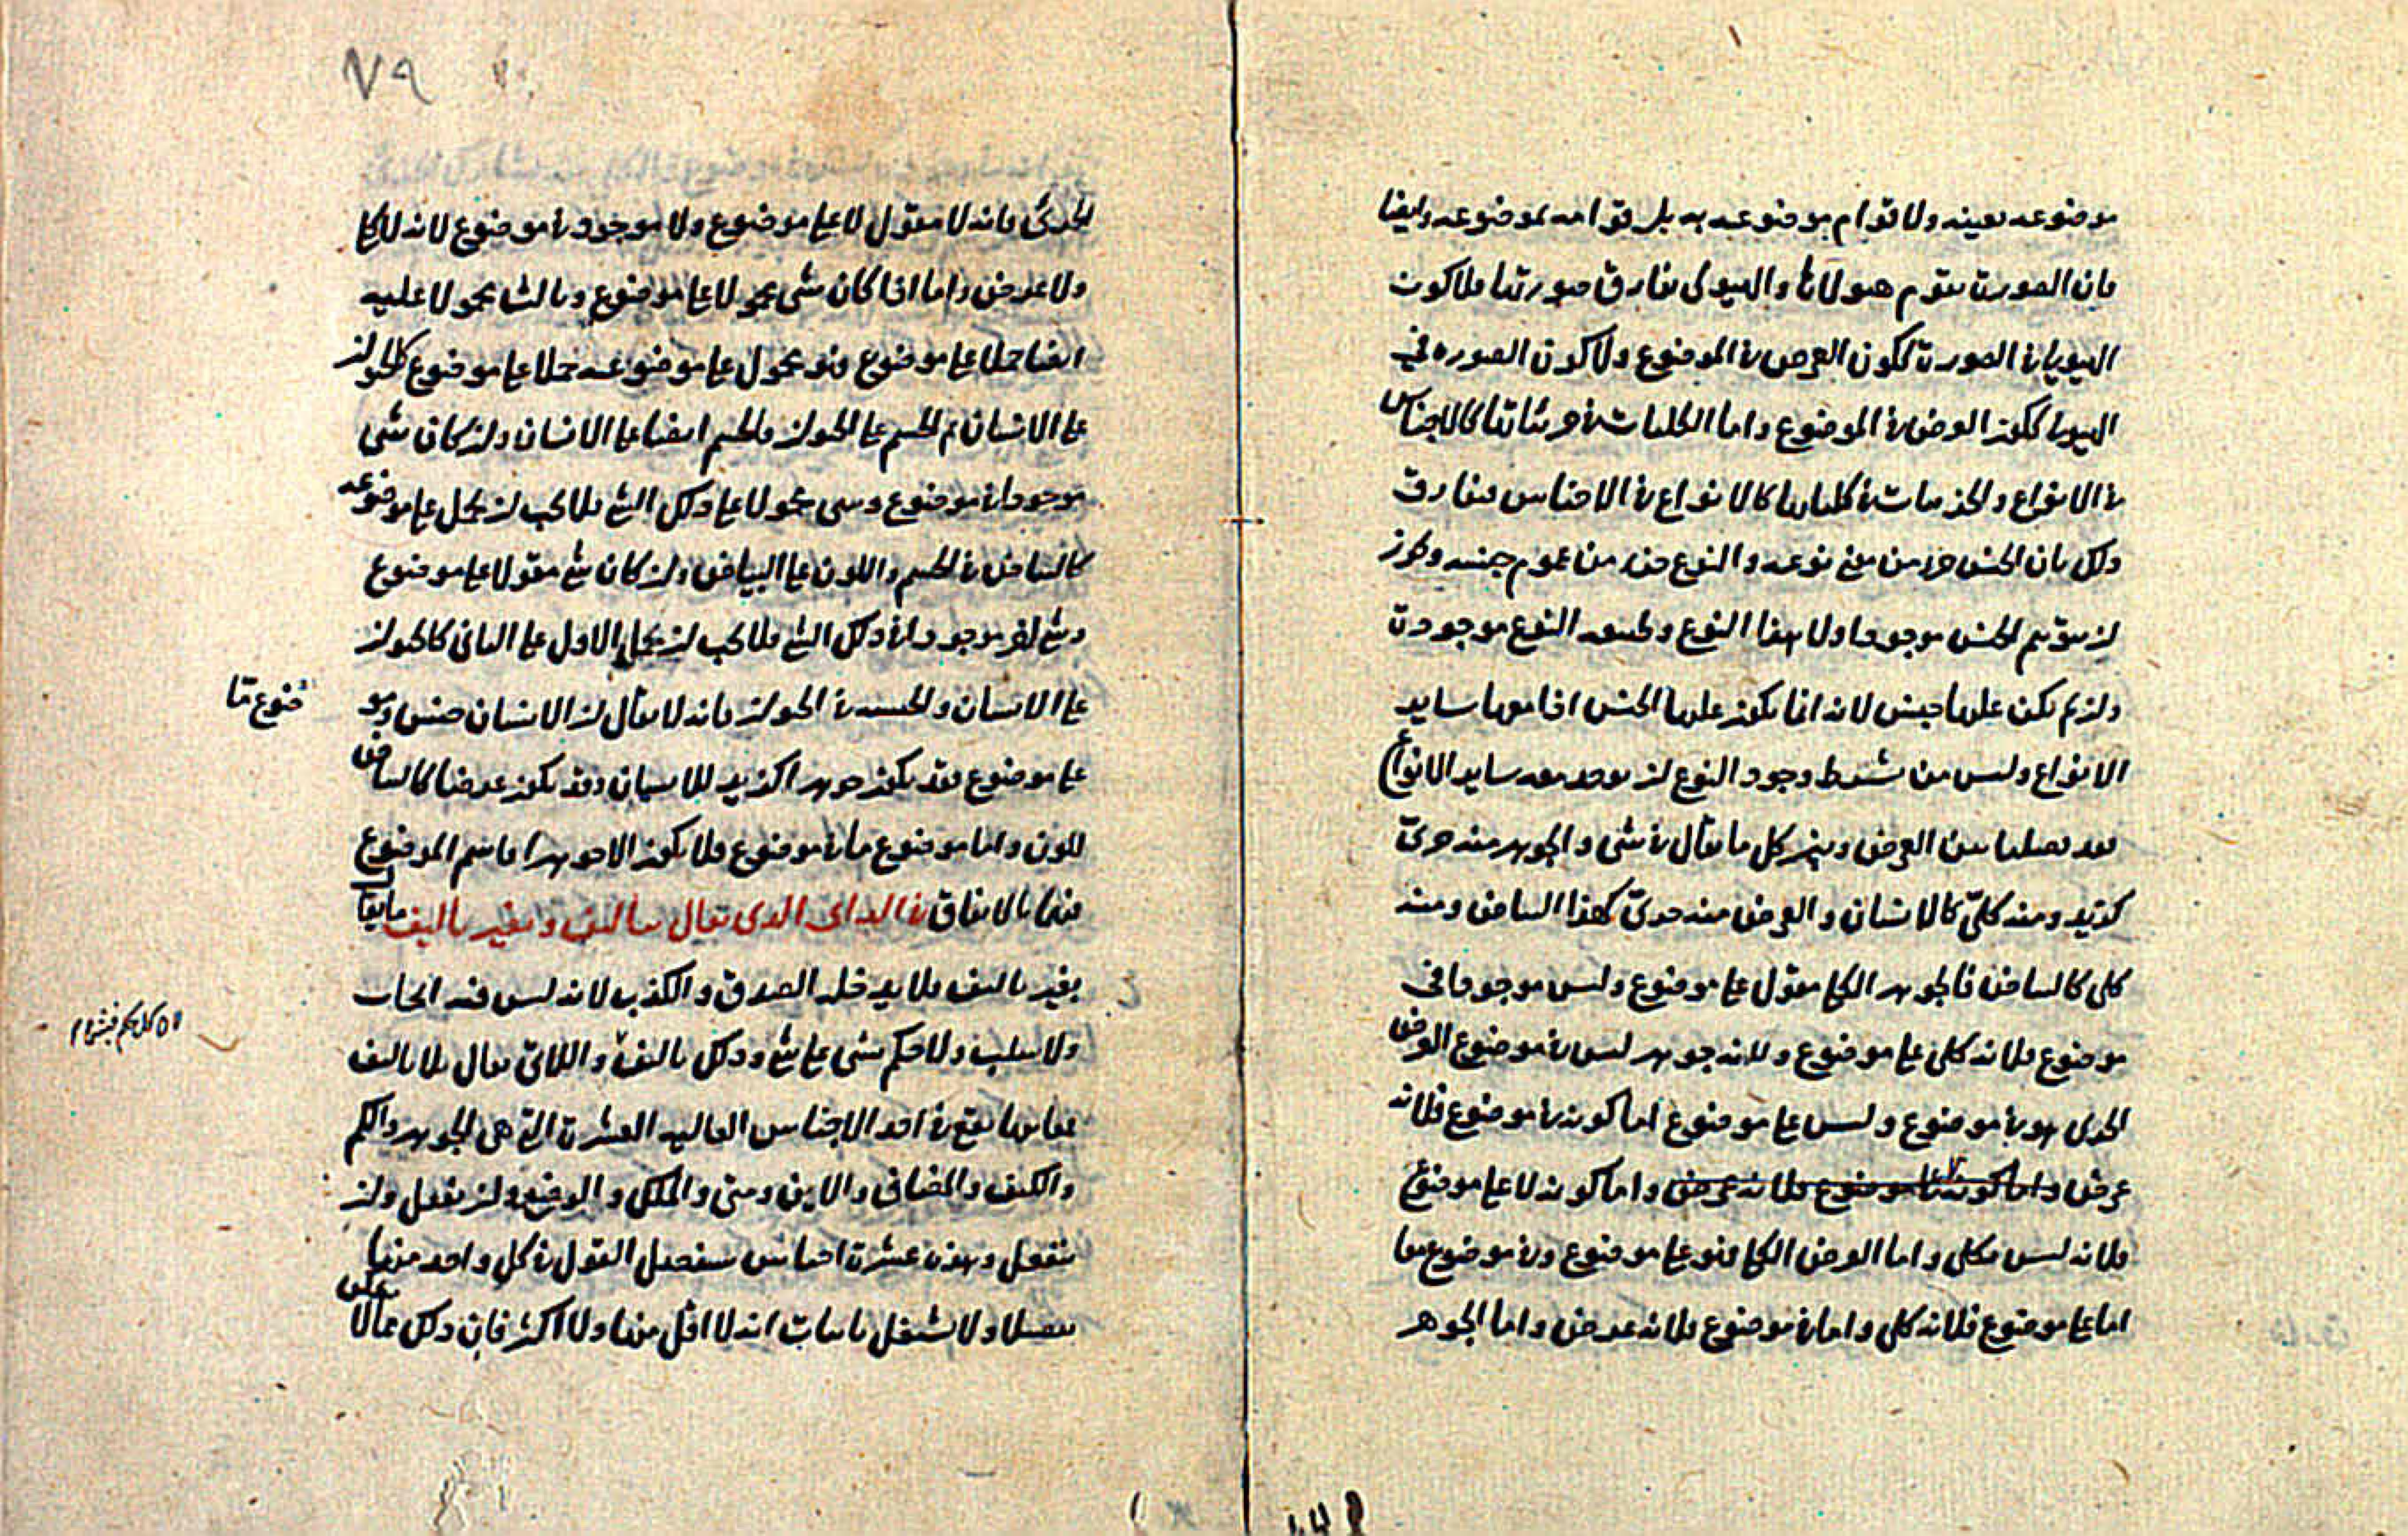 موضوعه بعينه ولا قوام موضوعه به بل قوامه بموضوعه وايضا
فان الصورة تقوم هيولاها والهيولى تفارق صورتها فلا كون
الهيولى في الصورة ككون العرض في الموضوع ولا كون الصورة في
الهيولى ككون العرض في الموضوع واما الكليات في جزئياتها كالاجناس
في الانواع والجزئيات في كلياتها كالانواع في الاجناس فيفارق
ذلك بان الجنس جزء من نوعه والنوع جزء من عموم جنسه
ان يتوهم الجنس موجودا ولا هذا النوع وطبيعة النوع موجودة
وان لم يكن عليها جنس لانه انما يكون عليها الجنس اذا معها ساير
الانواع وليس من شرط وجود النوع ان يوجد معه ساير الانواع
فقد فصلنا بين العرض وبين كل ما يقال في شي والجوهر منه جزئي
كزيد ومنه كلي كالانسان والعرض منه جزئي كهذا البياض ومنه
كلي كالبياض فالجوهر الكلي مقول على موضوع وليس موجودا في
موضوع فلانه كلي على موضوع ولانه جوهر ليس في موضوع العرض
الجزئي هو في موضوع وليس على موضوع اما كونه في موضوع فلانه
عرض واما كونه لا على موضوع
فلانه ليس بكلي واما العرض الكلي فهو على موضوع وفي موضوع معا
اما على موضوع فلانه كلي واما في موضوع فلانه عرض واما الجوهر
٧٩
الجزئي فانه لا مقول لا على موضوع ولا موجود في موضوع لانه لا كلي
ولا عرض واما اذا كان شي محمولا على موضوع وثالث محمولا عليه
ايضا حملا على موضوع فهو محمول على موضوعه حملا على موضوع كالحيوان
على الانسان ثم الجسم على الحيوان فالجسم ايضا على الانسان وان كان شي
موجودا في موضوع وشي محمولا على ذلك الشي فلا يجب ان يحمل على موضوعه
كالبياض في الجسم واللون على البياض وان كان شي مقولا على موضوع
وشي اخر موجودا في ذلك الشي فلا يجب ان يحمل الاول على الثاني كالحيوان
على الانسان والجنسية في الحيوان فانه لا يقال ان الانسان جنس وهو
ضوع ما
على موضوع فقد يكون جوهرا كزيد للانسان وقد يكون عرضا كالبياض
للون واما موضوع ما في موضوع فلا يكون الا جوهرا فاسم الموضوع
فيهما بالاتفاق في الذي يقال بتاليف وبغير تاليف ما يقال
بغير تاليف فلا يدخله الصدق والكذب لانه ليس فيه ايجاب
ولا سلب ولا حكم بشي على شي وذلك تاليف واللاتي تقال بلا تاليف
يقع في احد الاجناس العالية العشرة التي هي الجوهر والكم
والكيف والمضاف والاين ومتى والملك والوضع وان يفعل وان
ينفعل وهذه عشرة اجناس سنفصل القول في كل واحد منها
تفصيلا ولا نشتغل باثبات انه لا اقل منها ولا اكثر فان ذلك مما لا يمكن